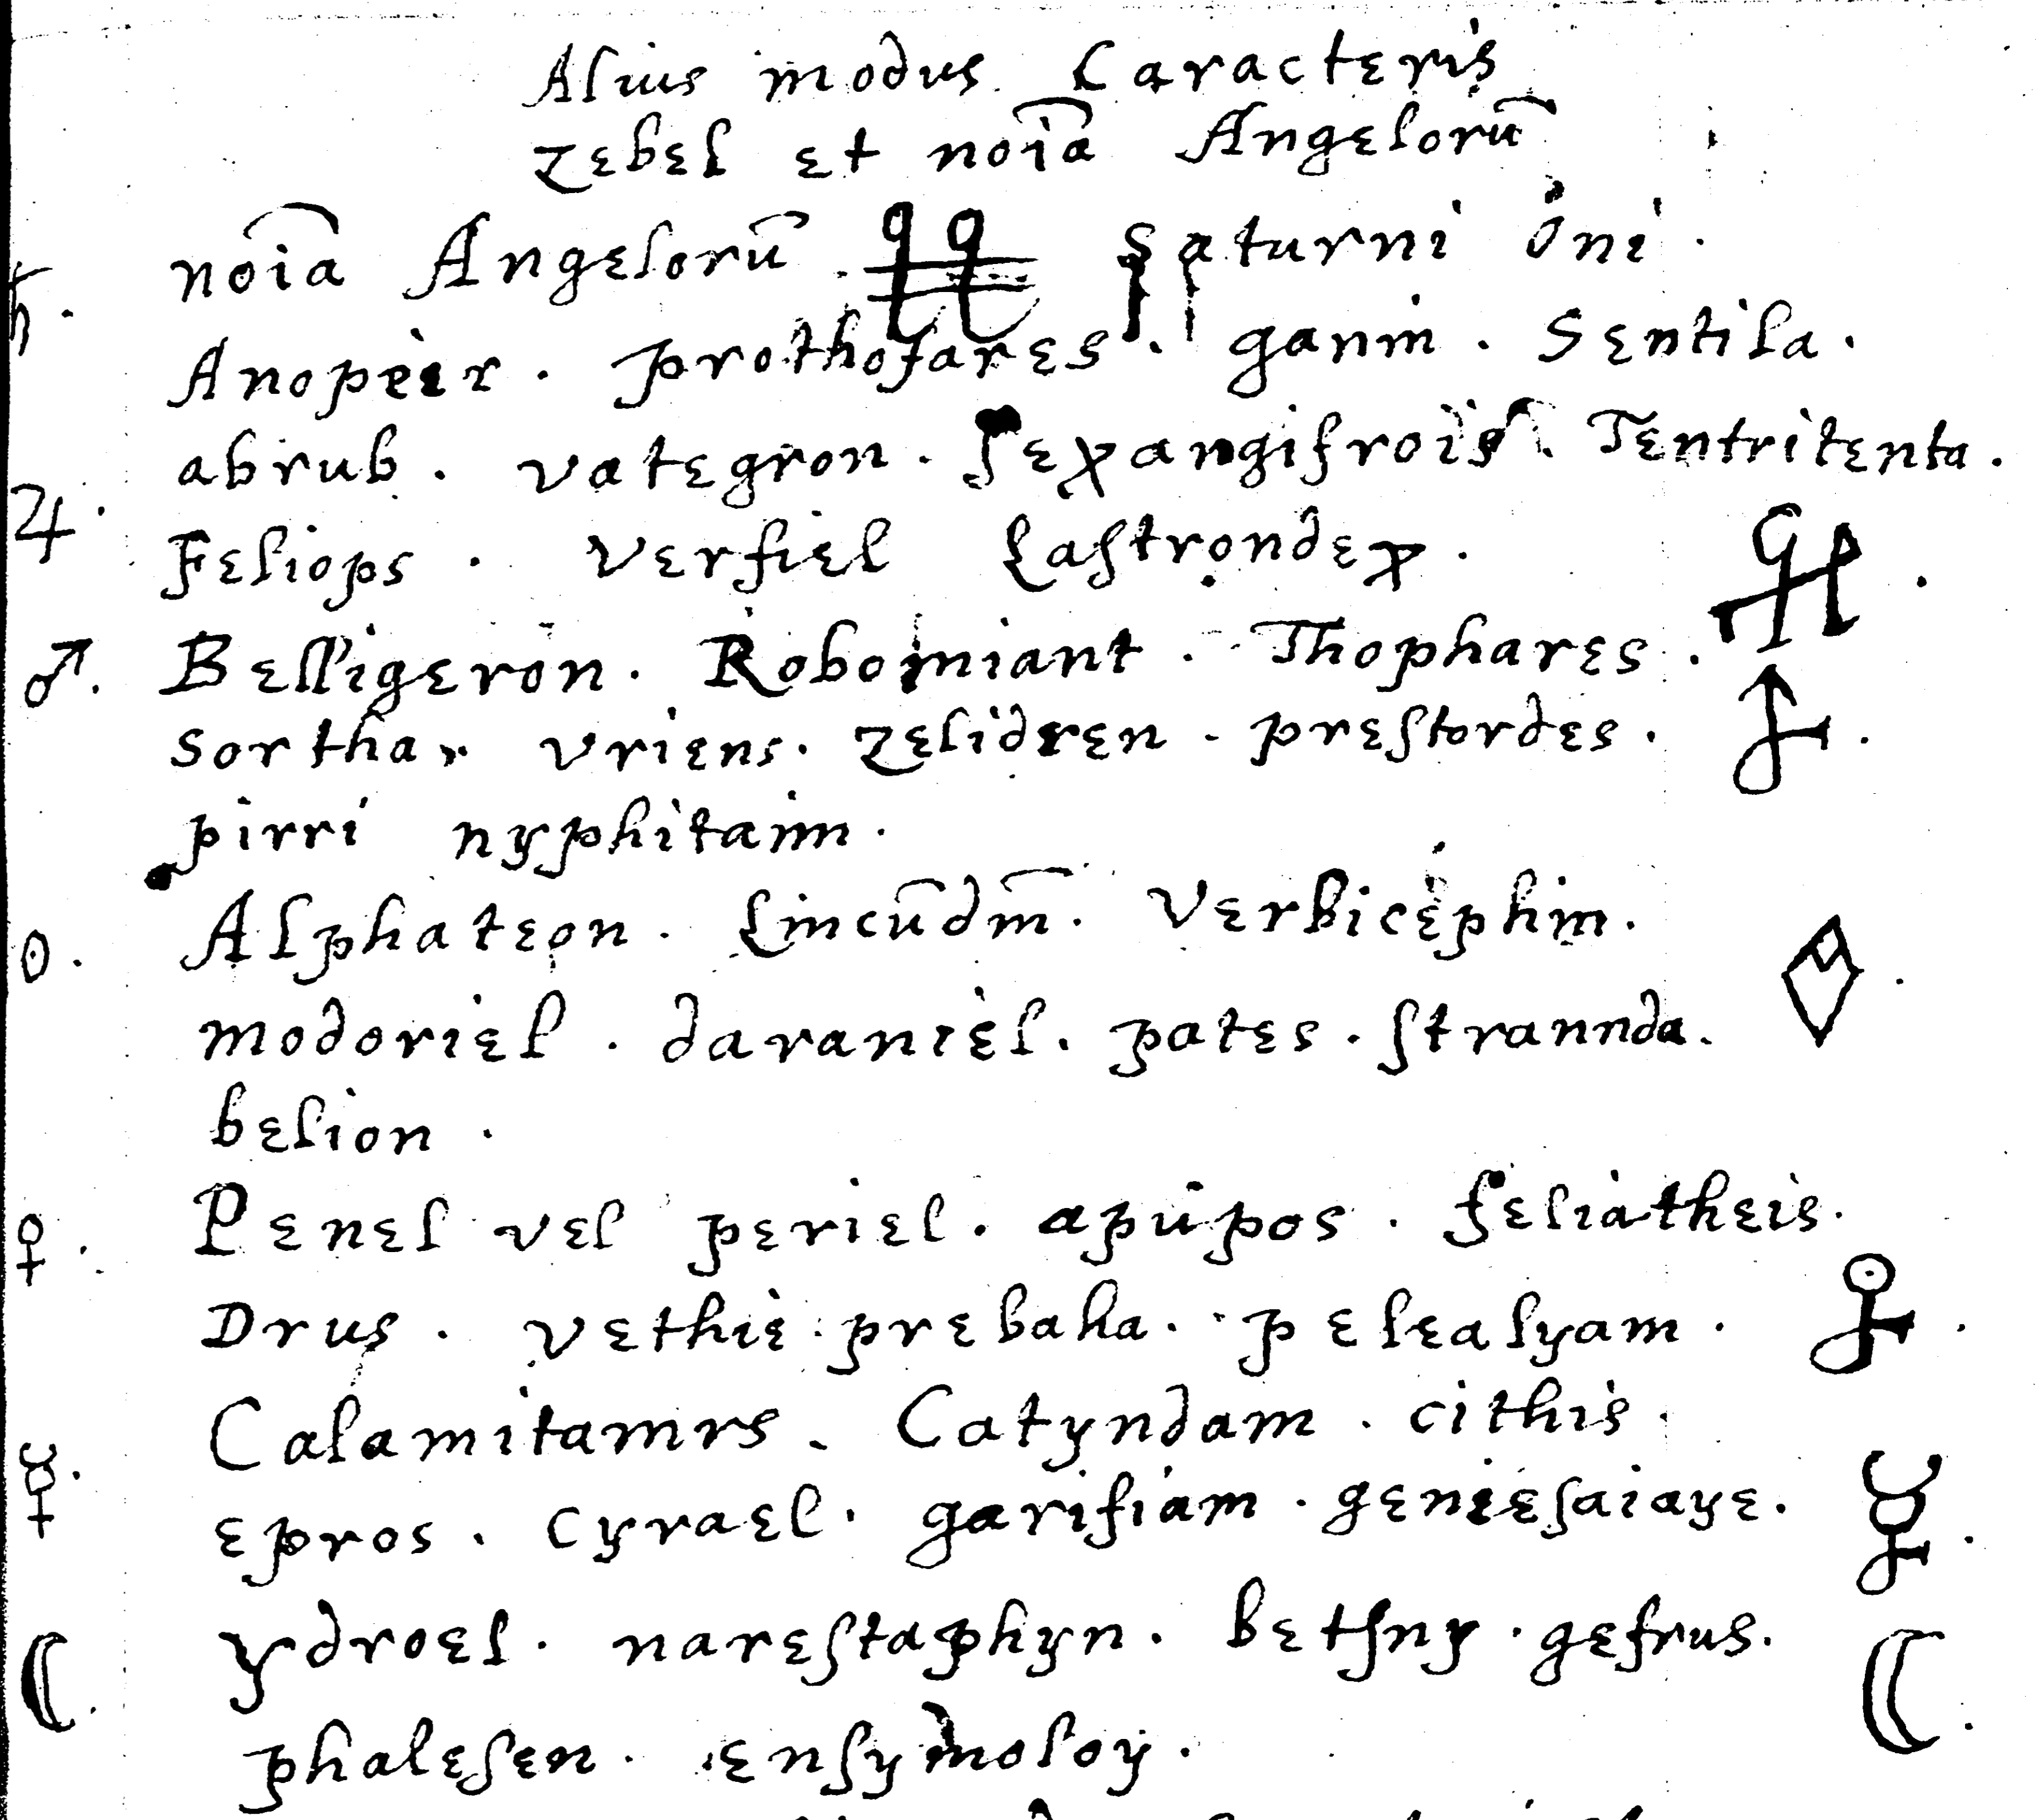 Alius modus Caracteris
Zebel et noı̄a Angelorū
noı̄a Angelorū. Saturni ōni.
♄. Anopeir. prothofares. ganin. Sentila.
abrub. vategron. sexangifrois. Tentritenta.
♃. Feliops. verfiel Castrondex.
♂. Belligeron. Robominiant. Thophares.
Sorthar vriens. Zelidren. prestordes.
pirri nyphitaim.
☉. Alphateon. Verbicephin.
modoriel. daraniel. pates. strannda.
belion.
♀. Penel vel periel. apupos. feliatheis.
Drus. vethie. prebaha. pelealyam.
☿. Calamitamrs. Catyndam. cithis.
epros. cyrael. garifiam. geniesaiaye.
☾. ydroel. narestaphyn. betsny. gefrus.
phalesen. ensymoloy.